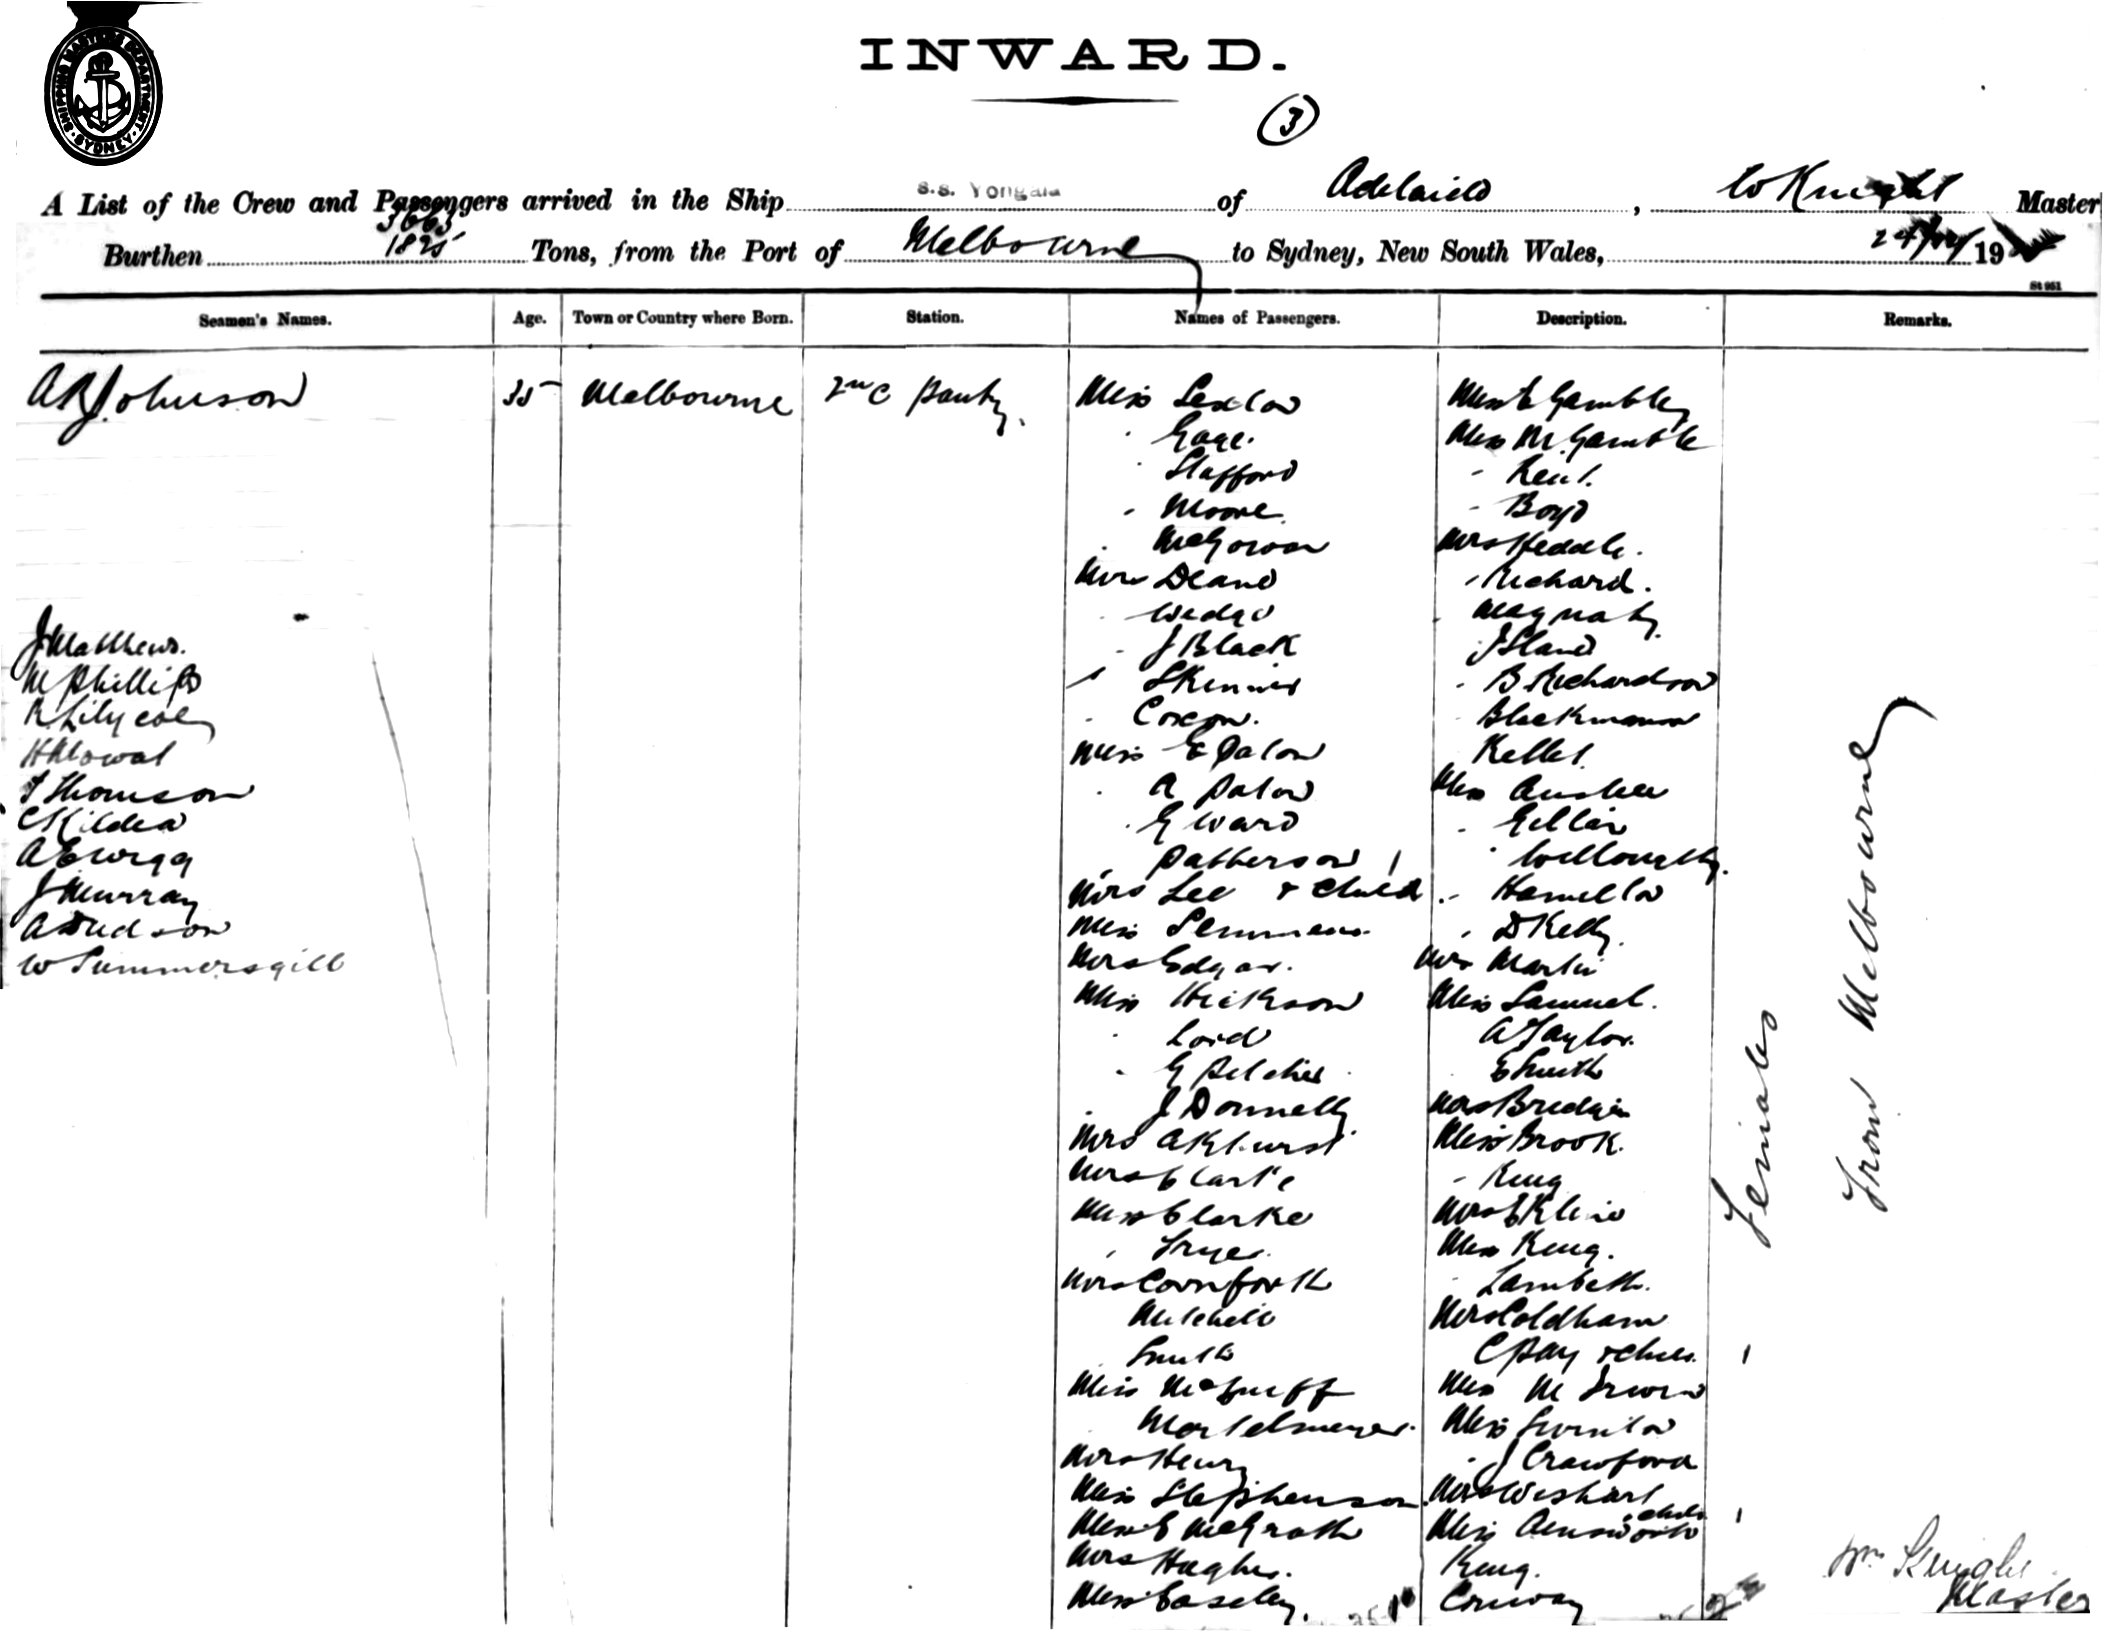 SHIPPING MASTERS DEPARTMENT · SYDNEY ·
INWARD.
3
A List of the Crew and Passengers arrived in the Ship s.s. Yongala of Adelaide, W Knight Master
3663
Burthen 1825 Tons, from the Port of Melbourne to Sydney, New South Wales, 19
St 951
Seamen's Names. Age. Town or Country where Born. Station. Names of Passengers. Description. Remarks.
A R Johnson 35 Melbourne 2nd Pantry Miss Miss E Gamble
Gage. Miss M. Gamble
Stafford - Kent.
Moore - Boyd
McGowan Mrs Heddle.
Mrs Deane - Richard.
Wedge
J Matthews. J Black
M Phillips Skinner - B Richardson
R Lilycol Coxon. Blackman
H Mowat Miss E Paton Kellet
T Thomson A Paton Miss
C Kildea E Ward
A E Wigg Patterson 1 Willoughby.
J Murray Mrs Lee & Child - Hamilton
A Judson Miss - D Kelly.
W Summersgill Mrs Edgar. Mrs Martin
Miss Hickson Miss Samuel.
Lord A Taylor.
G Pilcher E Smith
J Donnelly Mrs
Mrs Akhurst Miss Brook.
Mrs Clarke - King
Miss Clarke Mrs E Kline
Frye Miss King.
Mrs Cornforth Lambeth.
Mitchell Mrs Coldham
Smith C Day & Child 1
Miss McGuff Miss M Irwin
Miss Swinton
Mrs Henry J Crawford
Miss Stephenson Mrs Wishart
child 1
Miss E McGrath Miss Ainsworth
Mrs Hughes. King.
Miss Caseley. Conway
Females
From Melbourne
Wm Knight
Master